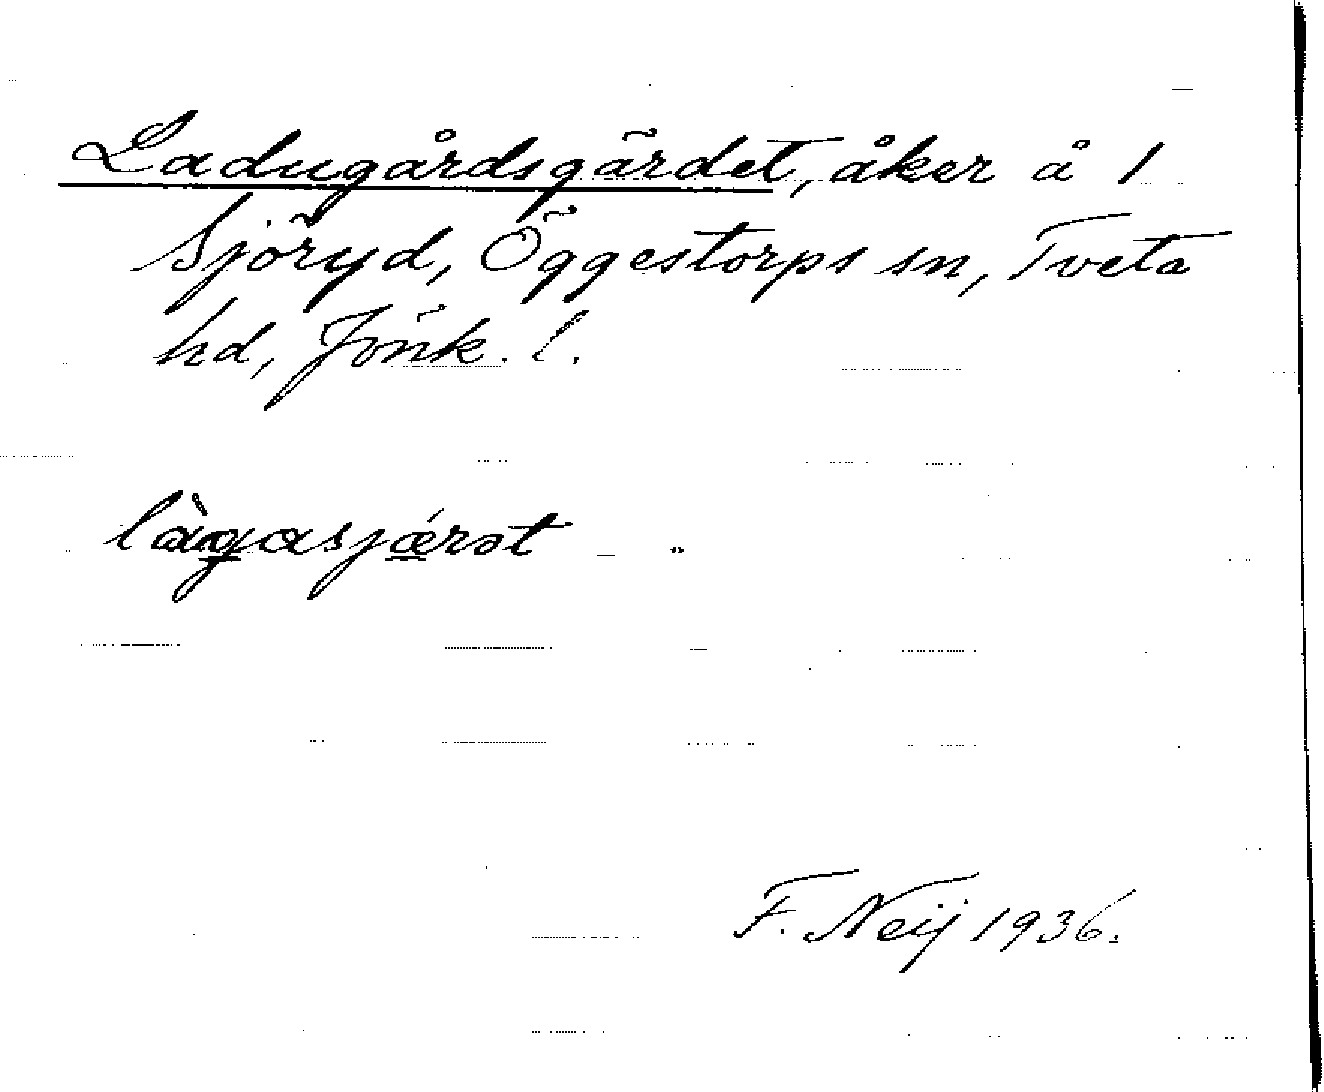 Ladugårdsgärdet, åker å 1
Sjöryd, Öggestorps sn, Tveta
hd, Jönk. l.
làgasjǽrət
F. Neij 1936.